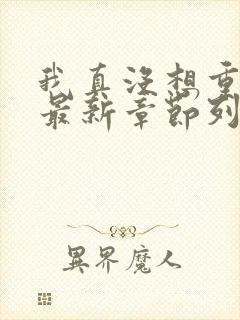 我真沒想重
最新章節列
異界魔人